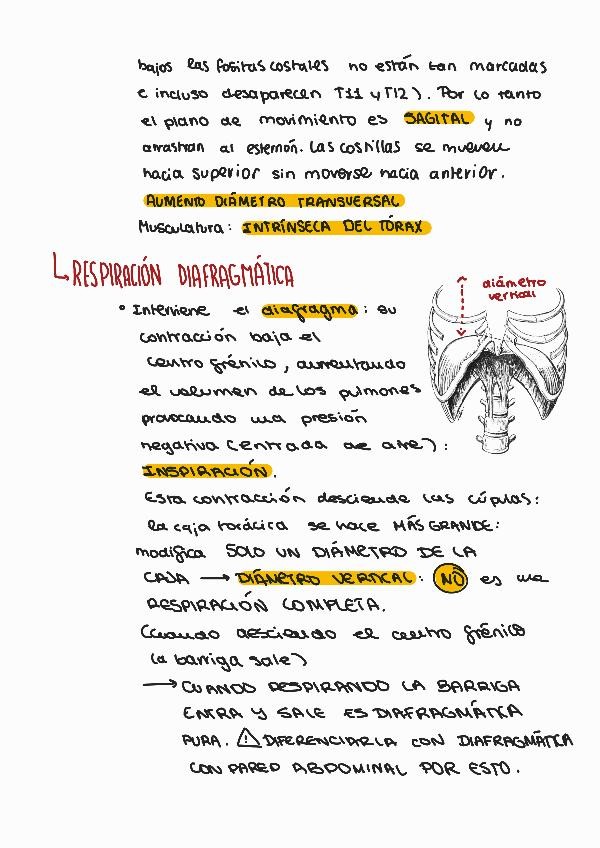 bajos las fositas costales no están tan marcadas
e incluso desaparecen T11 y T12). Por lo tanto
el plano de movimiento es SAGITAL y no
arrastran al esternón. Las costillas se mueven
hacia superior sin moverse hacia anterior.
AUMENTO DIÁMETRO TRANSVERSAL
Musculatura: INTRÍNSECA DEL TÓRAX
RESPIRACIÓN DIAFRAGMÁTICA
diámetro
vertical
• Interviene el diafragma: su
contracción baja el
centro frénico, aumentando
el volumen de los pulmones
provocando una presión
negativa (entrada de aire):
INSPIRACIÓN.
Esta contracción desciende las cúpulas:
la caja torácica se hace MÁS GRANDE:
modifica SOLO UN DIÁMETRO DE LA
CAJA → DIÁMETRO VERTICAL: NO es una
RESPIRACIÓN COMPLETA.
(Cuando desciendo el centro frénico
la barriga sale)
→ CUANDO RESPIRANDO LA BARRIGA
ENTRA Y SALE ES DIAFRAGMÁTICA
PURA. ⚠ DIFERENCIARLA CON DIAFRAGMÁTICA
CON PARED ABDOMINAL POR ESTO.